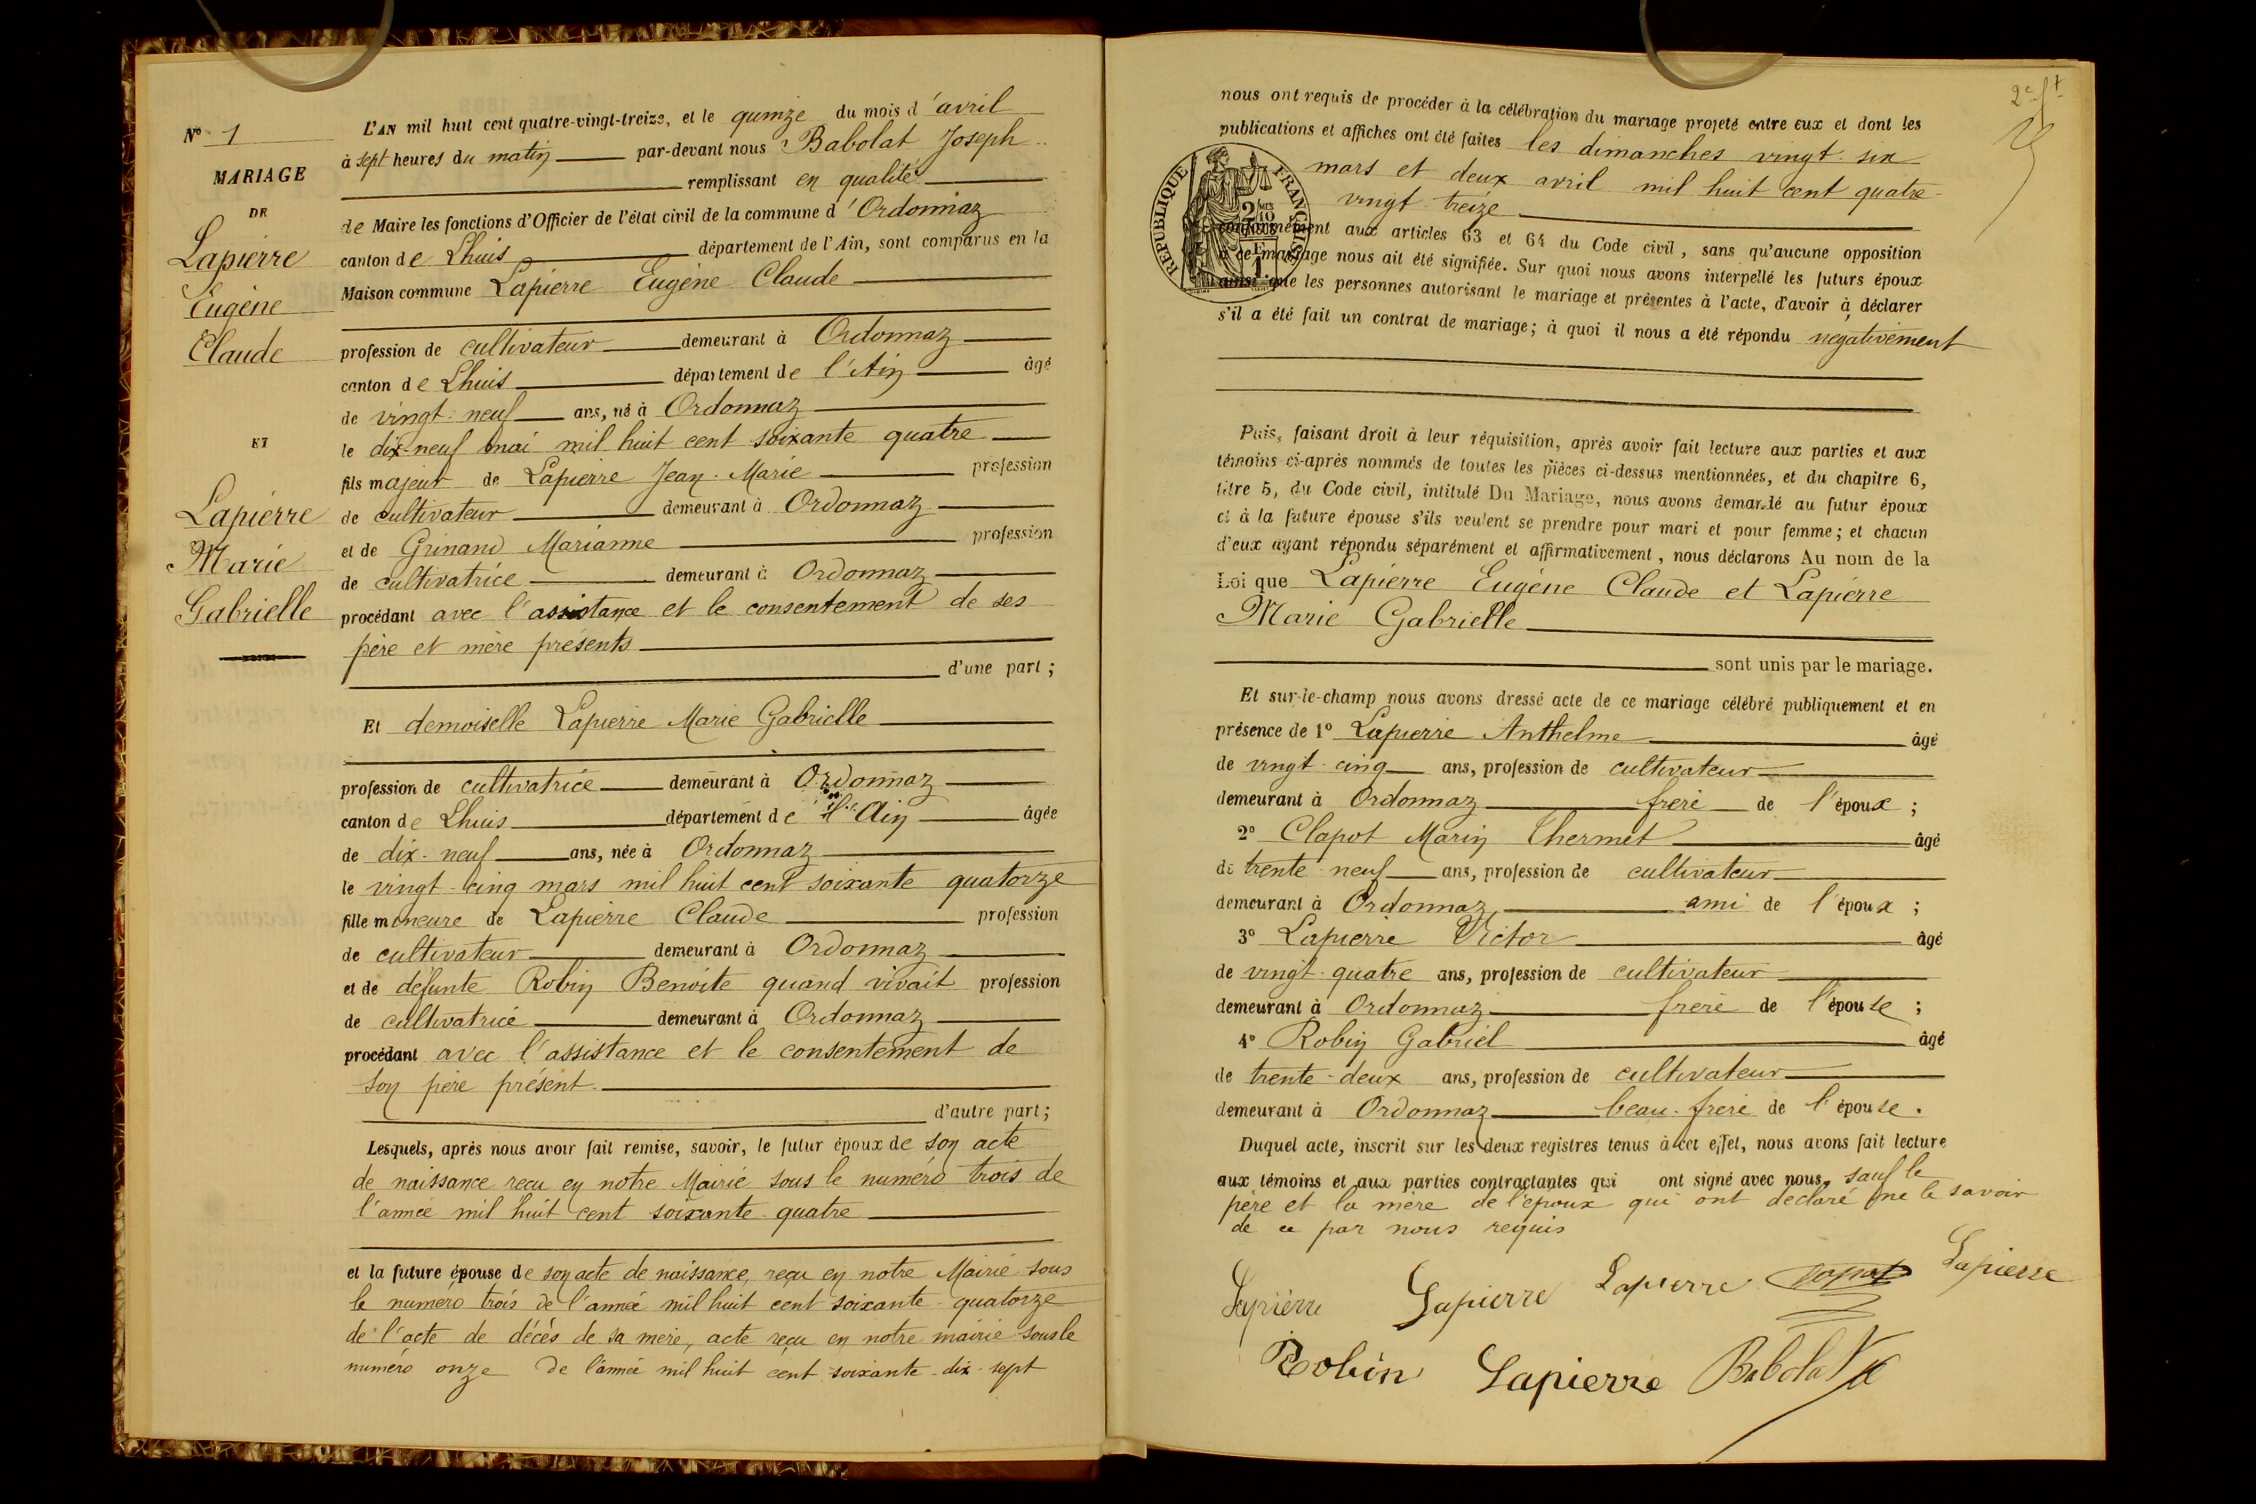 N° 1
MARIAGE
DE
Lapierre
Eugène
Claude
ET
Lapierre
Marie
Gabrielle
L'AN mil huit cent quatre-vingt-treize, et le quinze du mois d'avril
à sept heures du matin par-devant nous Babolat Joseph
remplissant en qualité
de Maire les fonctions d'Officier de l'état civil de la commune d'Ordonnaz
canton de Lhuis département de l'Ain, sont comparus en la
Maison commune Lapierre Eugène Claude
profession de cultivateur demeurant à Ordonnaz
canton de Lhuis département de l'Ain âgé
de vingt-neuf ans, né à Ordonnaz
le dix-neuf mai mil huit cent soixante quatre
fils majeur de Lapierre Jean-Marie profession
de cultivateur demeurant à Ordonnaz
et de Grinand Marianne profession
de cultivatrice demeurant à Ordonnaz
procédant avec l'assistance et le consentement de ses
père et mère présents
d'une part ;
Et demoiselle Lapierre Marie Gabrielle
profession de cultivatrice demeurant à Ordonnaz
canton de Lhuis département de l'Ain âgée
de dix-neuf ans, née à Ordonnaz
le vingt-cinq mars mil huit cent soixante quatorze
fille mineure de Lapierre Claude profession
de cultivateur demeurant à Ordonnaz
et de défunte Robin Benoite quand vivait profession
de cultivatrice demeurant à Ordonnaz
procédant avec l'assistance et le consentement de
son père présent
d'autre part ;
Lesquels, après nous avoir fait remise, savoir, le futur époux de son acte
de naissance reçu en notre Mairie sous le numéro trois de
l'année mil huit cent soixante-quatre
et la future épouse de son acte de naissance, reçu en notre Mairie sous
le numéro trois de l'année mil huit cent soixante-quatorze
de l'acte de décès de sa mère, acte reçu en notre mairie sous le
numéro onze de l'année mil huit cent soixante-dix-sept
2e ft
nous ont requis de procéder à la célébration du mariage projeté entre eux et dont les
publications et affiches ont été faites les dimanches vingt-six
mars et deux avril mil huit cent quatre-
vingt treize
RÉPUBLIQUE FRANÇAISE
conformément aux articles 63 et 64 du Code civil, sans qu'aucune opposition
à ce mariage nous ait été signifiée. Sur quoi nous avons interpellé les futurs époux
ainsi que les personnes autorisant le mariage et présentes à l'acte, d'avoir à déclarer
s'il a été fait un contrat de mariage ; à quoi il nous a été répondu négativement
Puis, faisant droit à leur réquisition, après avoir fait lecture aux parties et aux
témoins ci-après nommés de toutes les pièces ci-dessus mentionnées, et du chapitre 6,
titre 5, du Code civil, intitulé Du Mariage, nous avons demandé au futur époux
et à la future épouse s'ils veulent se prendre pour mari et pour femme ; et chacun
d'eux ayant répondu séparément et affirmativement, nous déclarons Au nom de la
Loi que Lapierre Eugène Claude et Lapierre
Marie Gabrielle
sont unis par le mariage.
Et sur-le-champ nous avons dressé acte de ce mariage célébré publiquement et en
présence de 1° Lapierre Anthelme âgé
de vingt-cinq ans, profession de cultivateur
demeurant à Ordonnaz frère de l'époux ;
2° Clapot Marin Thermet âgé
de trente neuf ans, profession de cultivateur
demeurant à Ordonnaz ami de l'époux ;
3° Lapierre Victor âgé
de vingt-quatre ans, profession de cultivateur
demeurant à Ordonnaz frère de l'épouse ;
4° Robin Gabriel âgé
de trente-deux ans, profession de cultivateur
demeurant à Ordonnaz beau-frère de l'épouse.
Duquel acte, inscrit sur les deux registres tenus à cet effet, nous avons fait lecture
aux témoins et aux parties contractantes qui ont signé avec nous, sauf le
père et la mère de l'époux qui ont déclaré ne le savoir
de ce par nous requis
Lapierre Lapierre Lapierre Lapierre
Robin Lapierre Babolat